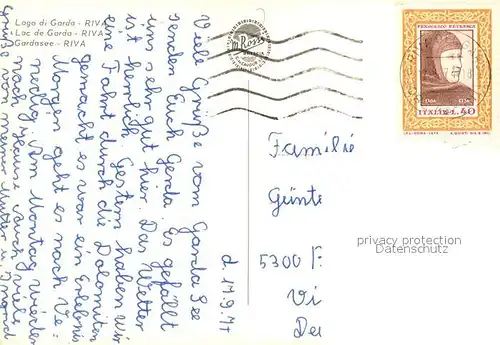 Lago di Garda - RIVA
Lac de Garda - RIVA
Gardasee - RIVA
Viele Grüße vom Garda See
senden Euch Gerda. Es gefällt
uns sehr gut hier. Das Wetter
ist herrlich. Gestern haben wir
eine Fahrt durch die Dolomiten
gemacht es war ein Erlebnis
Morgen geht es nach Ve=
nedig. Am Montag wieder
nach Hause. Auch viele
Grüße von meiner Mutter u.
d. 17.9.74
FRANCESCO PETRARCA
ITALIA L. 40
Familie
Günte
5300
Vi
Deu
privacy protection
Datenschutz